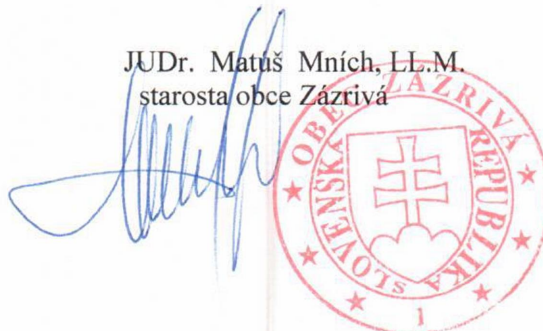 JUDr. Matúš Mních, LL.M.
starosta obce Zázrivá
OBEC ZÁZRIVÁ
SLOVENSKÁ REPUBLIKA
1